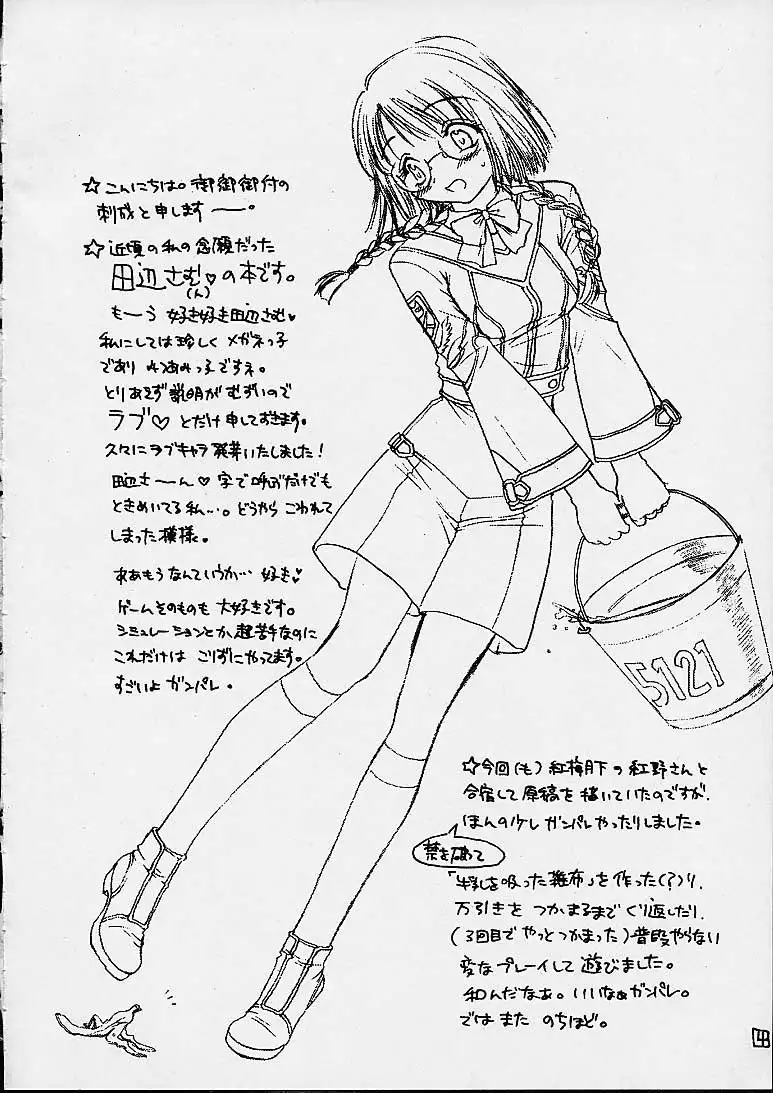 ☆こんにちは。御御御付の
刺成と申します――。
☆近頃の私の念願だった
田辺さむ♡の本です。
(ん)
も～う 好き好き田辺さむ♡
私にしては珍しくメガネっ子
であり みつあみっ子ですネ。
とりあえず説明がむずいので
ラブ♡ とだけ申しておきます。
久々にラブキャラ発芽いたしました!
田辺さ～ん♡字で呼ぶだけでも
ときめいてる私…。どうやら こわれて
しまった模様。
ああもうなんていうか… 好き♡
ゲームそのものも 大好きです。
シミュレーションとか超苦手なのに
これだけは こりずにやってます。
すごいよ ガンパレ。
☆今回(も)紅梅月下の紅野さんと
合宿して原稿を描いていたのですが、
ほんの少し ガンパレやったりしました。
禁を破って
「牛乳を吸った雑布」を作った(?)り、
万引きを つかまるまで くり返したり、
(3回目でやっとつかまった)普段やらない
変なプレイして 遊びました。
和んだなぁ。いいなぁガンパレ。
ではまた のちほど。
5121